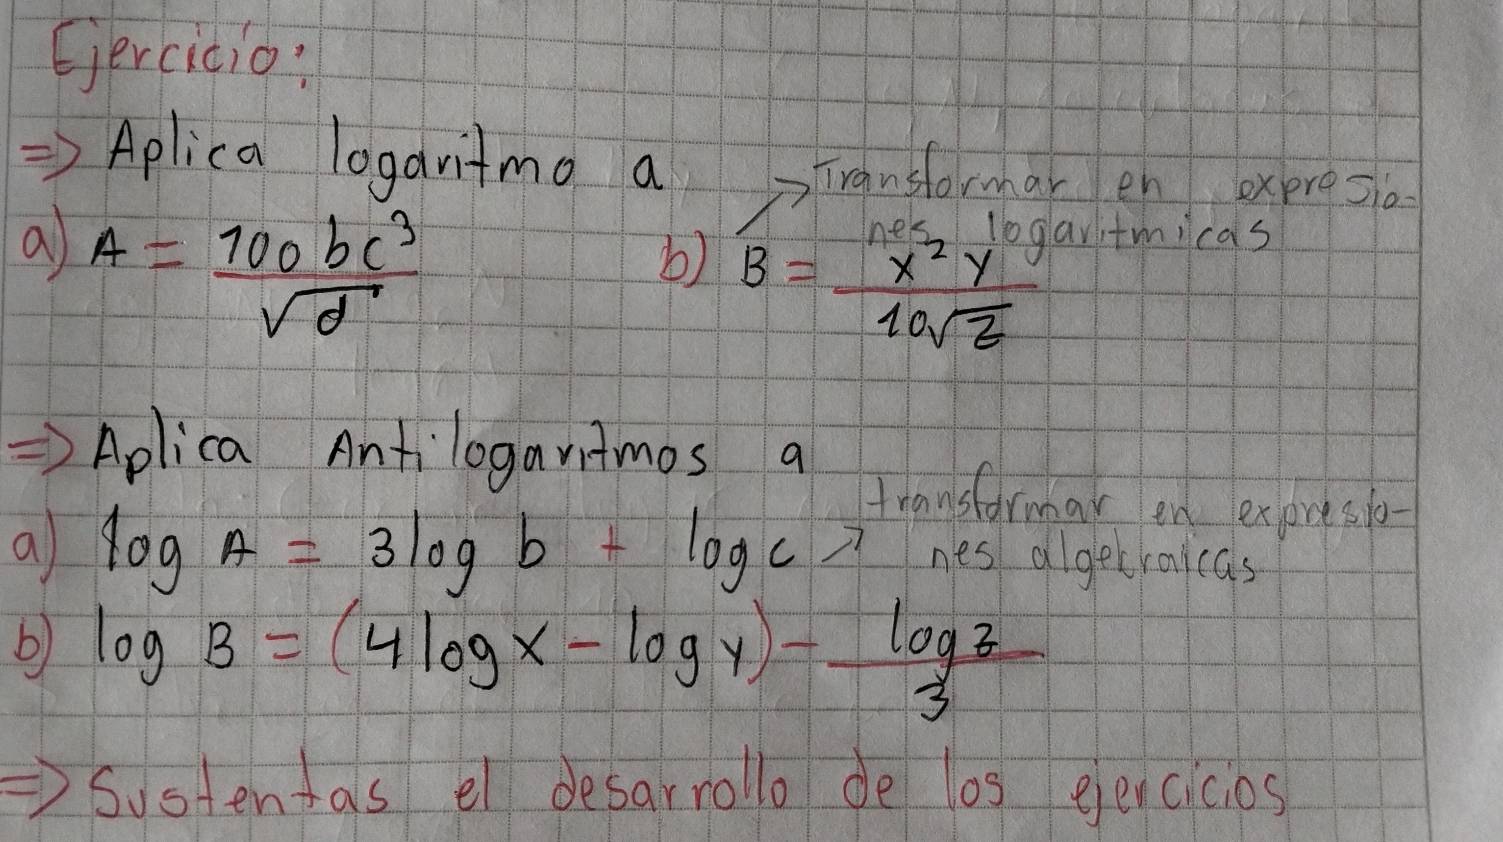 Ejercicio:
=> Aplica logaritmo a
→ Transformar en expresio-
nes logaritmicas
a) A = 100 bc³ / √d
b) B = x² y / 10√z
=> Aplica Antilogaritmos a
a) log A = 3 log b + log c → transformar en expresio-
nes algebraicas
b) log B = (4 log x - log y) - log z / 3
=> Sustentas el desarrollo de los ejercicios